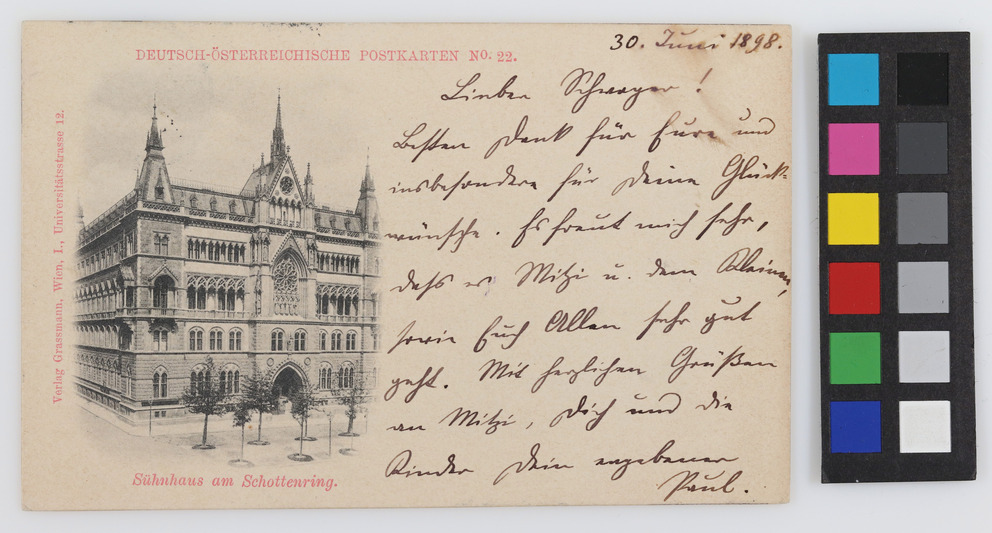 DEUTSCH-ÖSTERREICHISCHE POSTKARTEN No. 22.
30. Juni 1898.
Lieber Schwager!
Besten Dank für Eure und
insbesondere für Deine Glück-
wünsche. Es freut mich sehr,
daſs es Mitzi u. dem Kleinen,
sowie Euch Allen sehr gut
geht. Mit herzlichen Grüßen
an Mitzi, Dich und die
Kinder Dein ergebener
Paul.
Verlag Grassmann, Wien, I., Universitätsstrasse 12.
Sühnhaus am Schottenring.